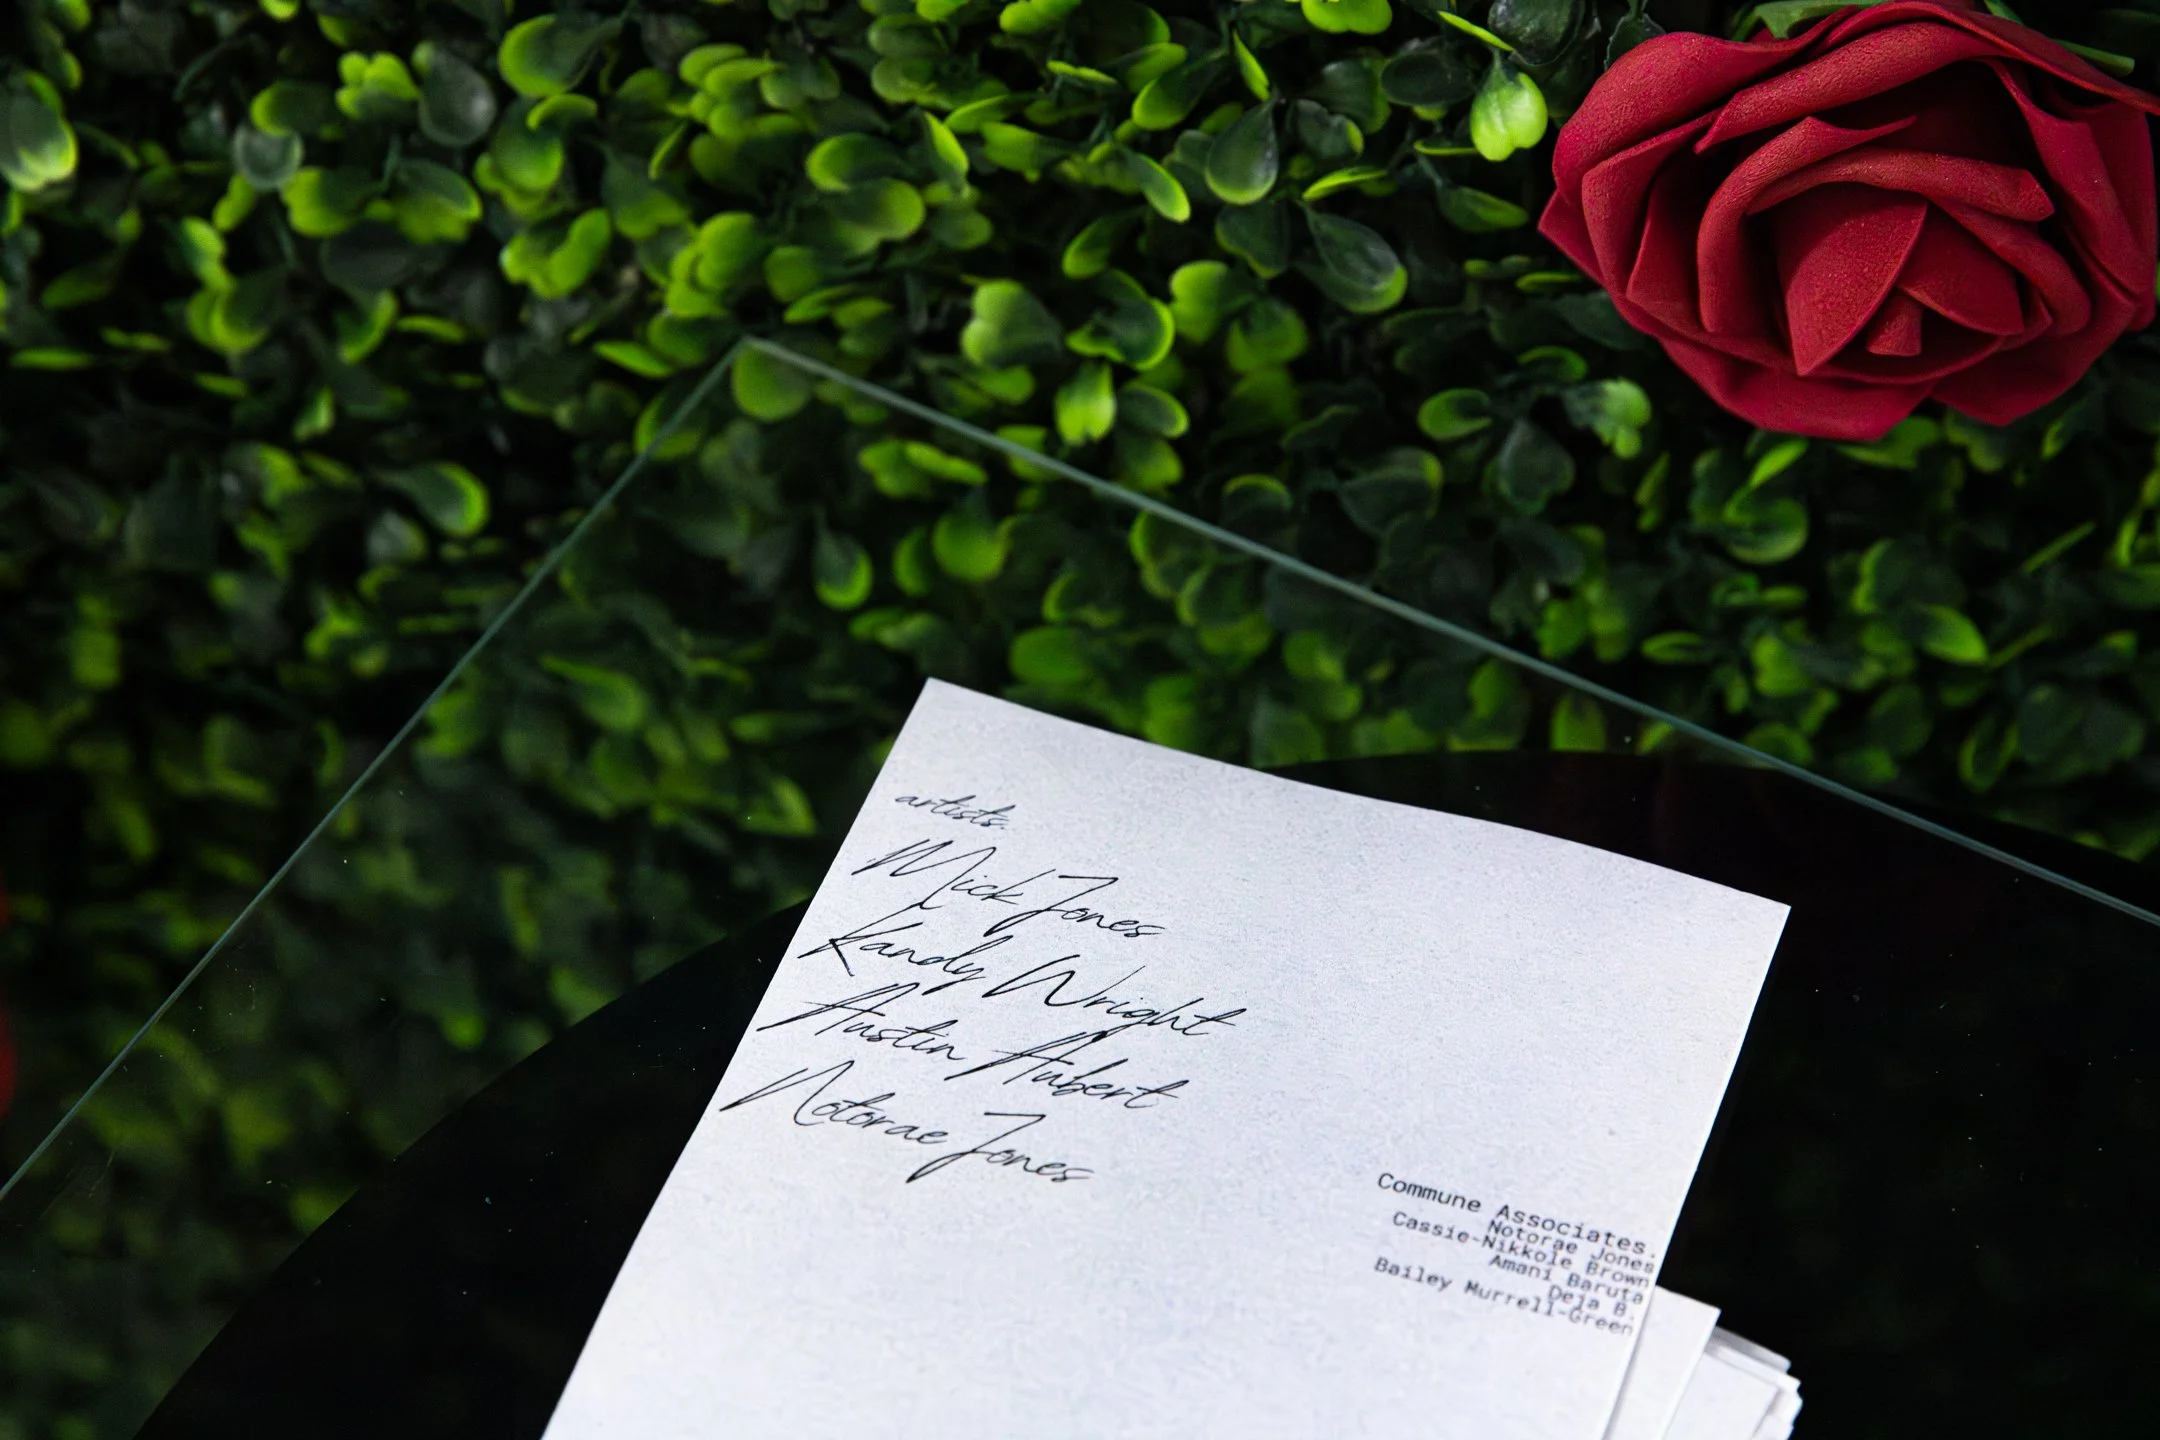 artists.
Mick Jones
Kandy Wright
Austin Aubert
Notorae Jones
Commune Associates.
Notorae Jones
Cassie-Nikkole Brown
Amani Baruta
Deja B.
Bailey Murrell-Green